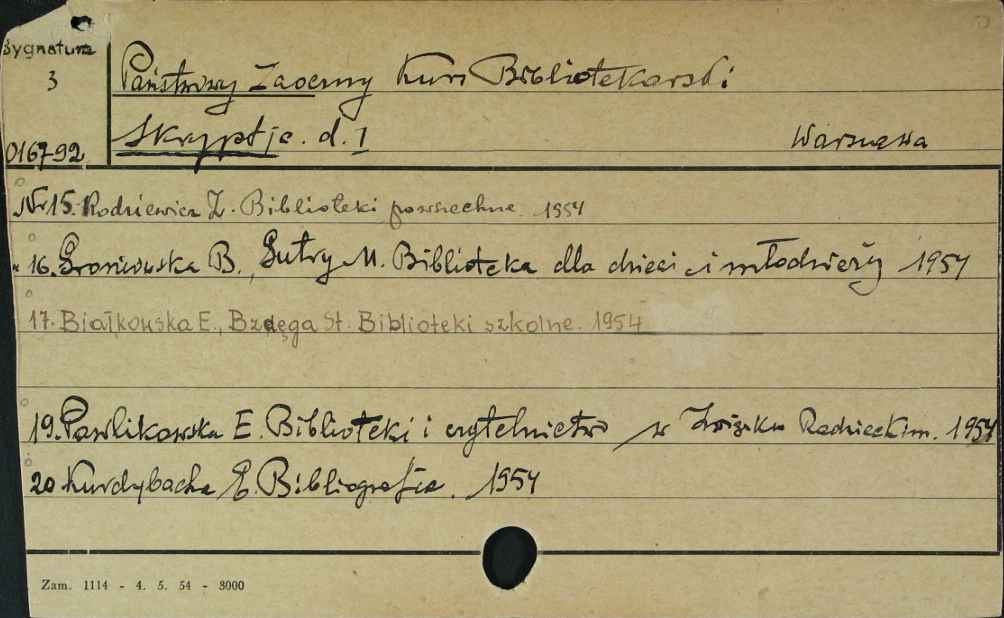 Sygnatura
3
Państwowy Zaoczny Kurs Bibliotekarski
Skrypt je. d. I
Warszawa
016792
Nr 15. Rodziewicz Z. Biblioteki powszechne 1954
" 16. Groniowska B., Gutry M. Biblioteka dla dzieci i młodzieży 1954
17. Białkowska E., Bzdęga St. Biblioteki szkolne. 1954
19. Pawlikowska E. Biblioteki i czytelnictwo w Związku Radzieckim. 1954
20 Kurdybacha E. Bibliografia. 1954
Zam. 1114 - 4. 5. 54 - 3000